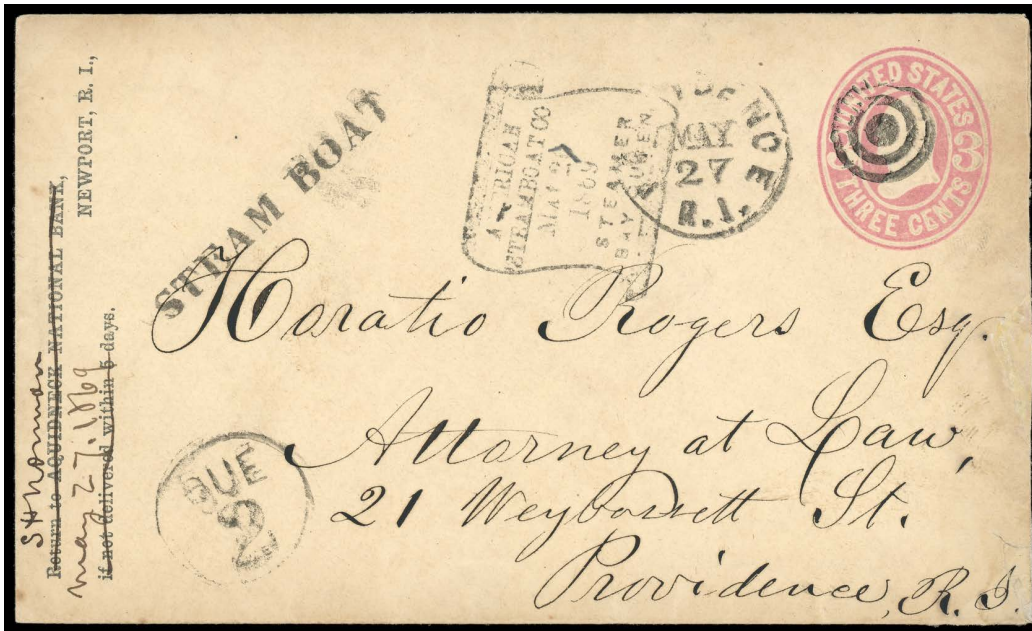 Return to AQUIDNECK NATIONAL BANK,
NEWPORT, R. I.,
if not delivered within 5 days.
S H Norman
may 27. 1869
STEAM BOAT
AMERICAN
STEAMBOAT CO
MAY 27
1869
STEAMER
BAY QUEEN
MAY
27
R.I.
UNITED STATES
3
THREE CENTS
Horatio Rogers Esq.
Attorney at Law,
21 Weybossett St.
Providence, R. I.
DUE
2